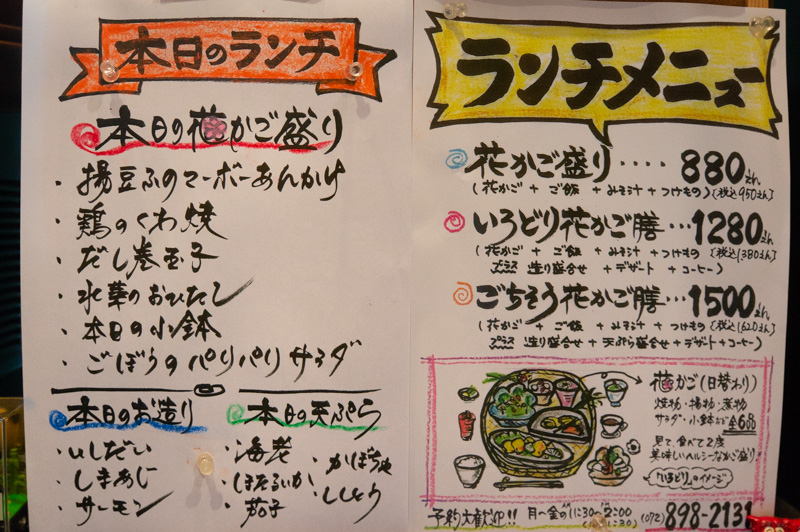 本日のランチ
本日の花かご盛り
・揚豆ふのマーボーあんかけ
・鶏のくわ焼
・だし巻玉子
・水菜のおひたし
・本日の小鉢
・ごぼうのパリパリサラダ
本日のお造り
・いしだい
・しまあじ
・サーモン
本日の天ぷら
・海老
・ほたるいか
・茄子
・かぼちゃ
・ししとう
ランチメニュー
花かご盛り････880えん
(花かご + ご飯 + みそ汁 + つけもの)(税込950えん)
いろどり花かご膳･･･1280えん
(花かご + ご飯 + みそ汁 + つけもの (税込1380えん)
プラス 造り盛合せ + デザート + コーヒー)
ごちそう花かご膳･･･1500えん
(花かご + ご飯 + みそ汁 + つけもの (税込1620えん)
プラス 造り盛合せ + 天ぷら盛合せ + デザート + コーヒー)
花かご(日替わり)
焼物・揚物・煮物
サラダ・小鉢など全6品
見て、食べて2度
美味しいヘルシーなかご盛り!
「いろどり」のイメージ
予約大歓迎!! 月~金の11:30~2:00
(072)898-2131